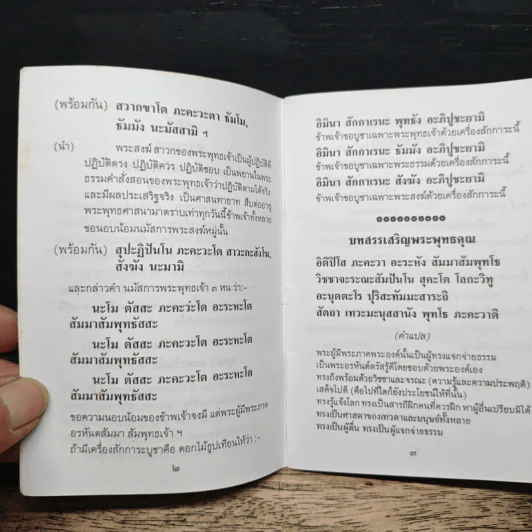 (พร้อมกัน) สวากขาโต ภะคะวะตา ธัมโม,
ธัมมัง นะมัสสามิ ฯ
(นำ) พระสงฆ์ สาวกของพระพุทธเจ้าเป็นผู้ปฏิบัติดี
ปฏิบัติตรง ปฏิบัติควร ปฏิบัติชอบ เป็นพยานในพระ
ธรรมคำสั่งสอนของพระพุทธเจ้าว่าปฏิบัติตามได้จริง
และมีผลประเสริฐจริง เป็นศาสนทายาท สืบต่ออายุ
พระพุทธศาสนามาตราบเท่าทุกวันนี้ข้าพเจ้าทั้งหลาย
ขอนอบน้อมนมัสการพระสงฆ์หมู่นั้น
(พร้อมกัน) สุปะฏิปันโน ภะคะวะโต สาวะกะสังโฆ,
สังฆัง นะมามิ
และกล่าวคำ นมัสการพระพุทธเจ้า ๓ หน ว่า:-
นะโม ตัสสะ ภะคะวะโต อะระหะโต
สัมมาสัมพุทธัสสะ
นะโม ตัสสะ ภะคะวะโต อะระหะโต
สัมมาสัมพุทธัสสะ
นะโม ตัสสะ ภะคะวะโต อะระหะโต
สัมมาสัมพุทธัสสะ
ขอความนอบน้อมของข้าพเจ้าจงมี แด่พระผู้มีพระภาค
อรหันตสัมมา สัมพุทธเจ้า ฯ
ถ้ามีเครื่องสักการะบูชาคือ ดอกไม้ธูปเทียนให้ว่า :-
๒
อิมินา สักกาเรนะ พุทธัง อะภิปูชะยามิ
ข้าพเจ้าขอบูชาเฉพาะพระพุทธเจ้าด้วยเครื่องสักการะนี้
อิมินา สักกาเรนะ ธัมมัง อะภิปูชะยามิ
ข้าพเจ้าขอบูชาเฉพาะพระธรรมด้วยเครื่องสักการะนี้
อิมินา สักกาเรนะ สังฆัง อะภิปูชะยามิ
ข้าพเจ้าขอบูชาเฉพาะพระสงฆ์ด้วยเครื่องสักการะนี้
บทสรรเสริญพระพุทธคุณ
อิติปิโส ภะคะวา อะระหัง สัมมาสัมพุทโธ
วิชชาจะระณะสัมปันโน สุคะโต โลกะวิทู
อะนุตตะโร ปุริสะทัมมะสาระถิ
สัตถา เทวะมะนุสสานัง พุทโธ ภะคะวาติ
(คำแปล)
พระผู้มีพระภาคพระองค์นั้นเป็นผู้ทรงแจกจ่ายธรรม
เป็นพระอรหันต์ตรัสรู้ดีโดยชอบด้วยพระองค์เอง
ทรงถึงพร้อมด้วยวิชชาและจรณะ (ความรู้และความประพฤติ)
เสด็จไปดี (คือไปที่ใดก็ยังประโยชน์ให้ที่นั้น)
ทรงรู้แจ้งโลก ทรงเป็นสารถีฝึกคนที่ควรฝึก หาผู้อื่นเปรียบมิได้
ทรงเป็นศาสดาของเทวดาและมนุษย์ทั้งหลาย
ทรงเป็นผู้ตื่น ทรงเป็นผู้แจกจ่ายธรรม
๓